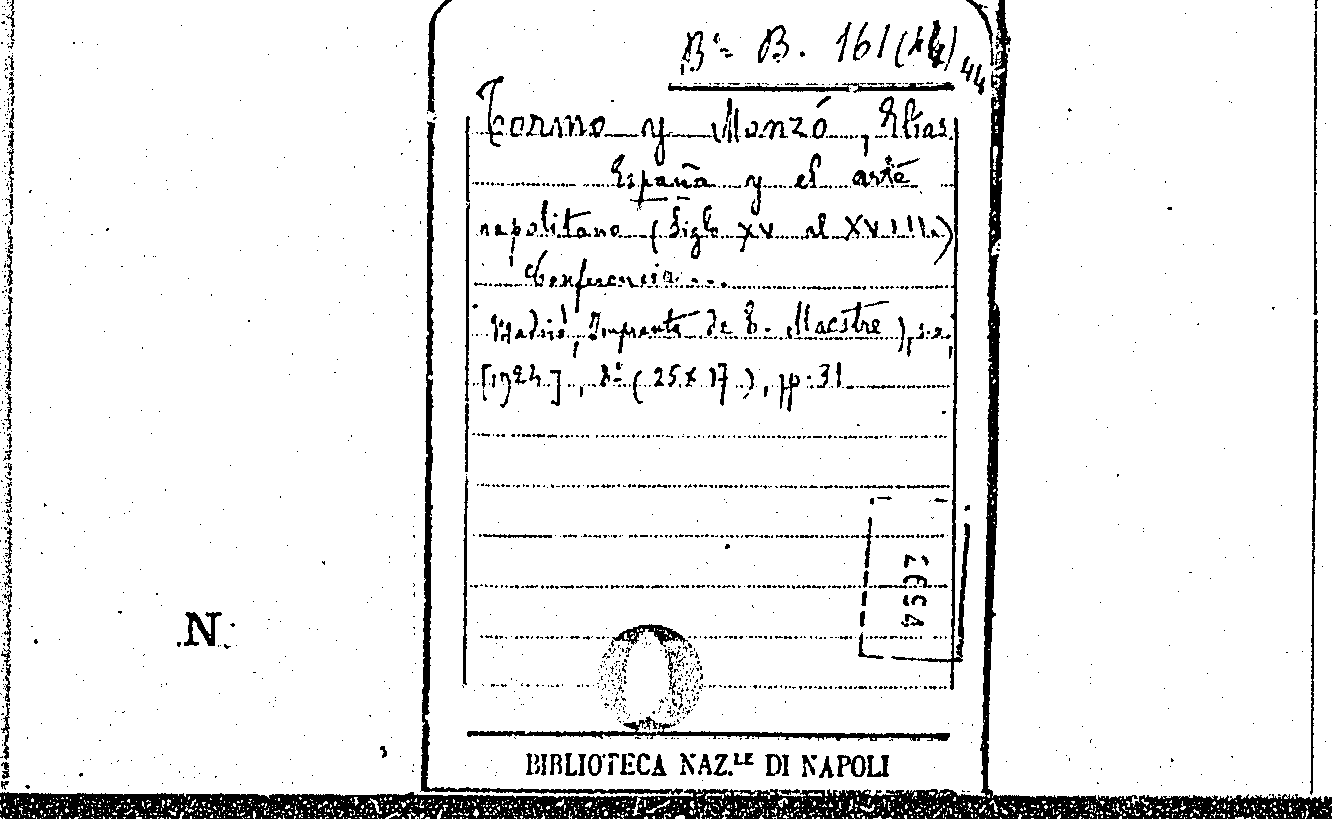 Bª B. 161 (44
Tormo y Monzó, Elias
España y el arte
napolitano (Siglo XV al XVIII.)
Conferencia...
Madrid, Imprenta de E. Maestre), s.a.,
[1924], 8º (25x17), pp. 31
N.
BIBLIOTECA NAZ.LE DI NAPOLI